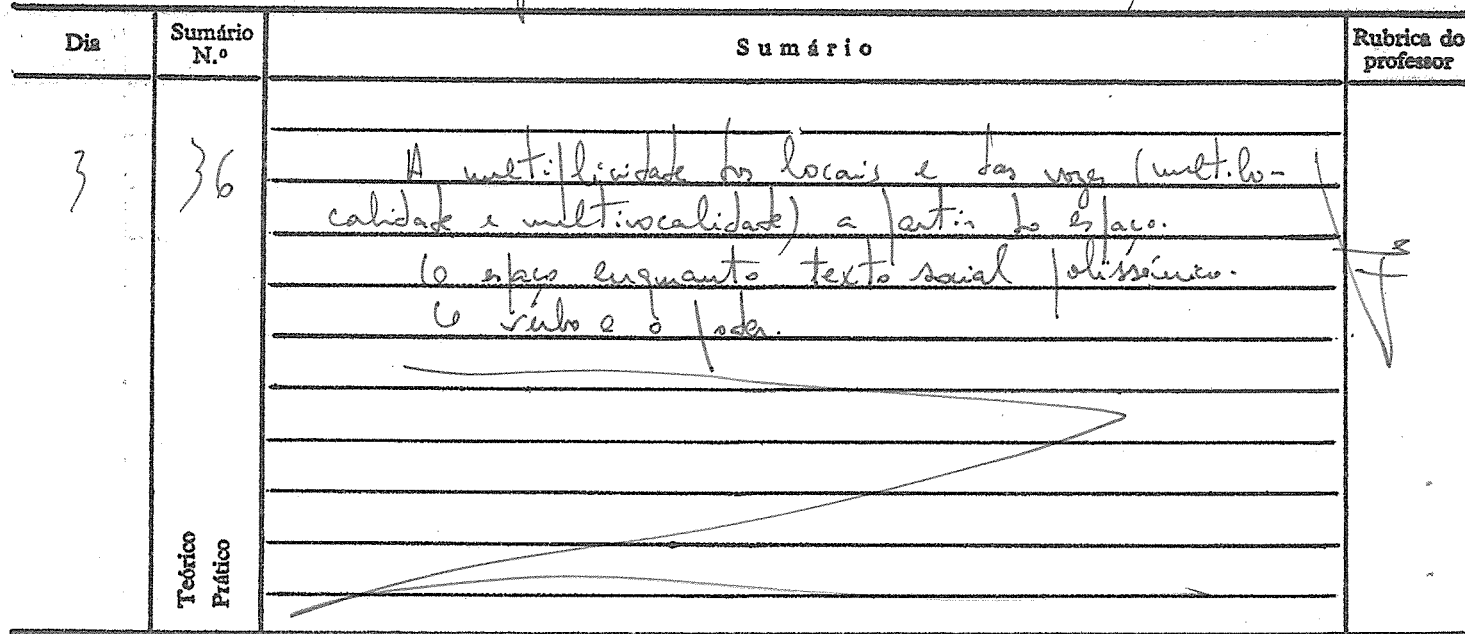 Dia
Sumário N.º
Sumário
Rubrica do professor
3
36
A multiplicidade dos locais e das vozes (multilo-
calidade e multivocalidade) a partir do espaço.
O espaço enquanto texto social polissémico.
O verbo e o poder.
Teórico
Prático